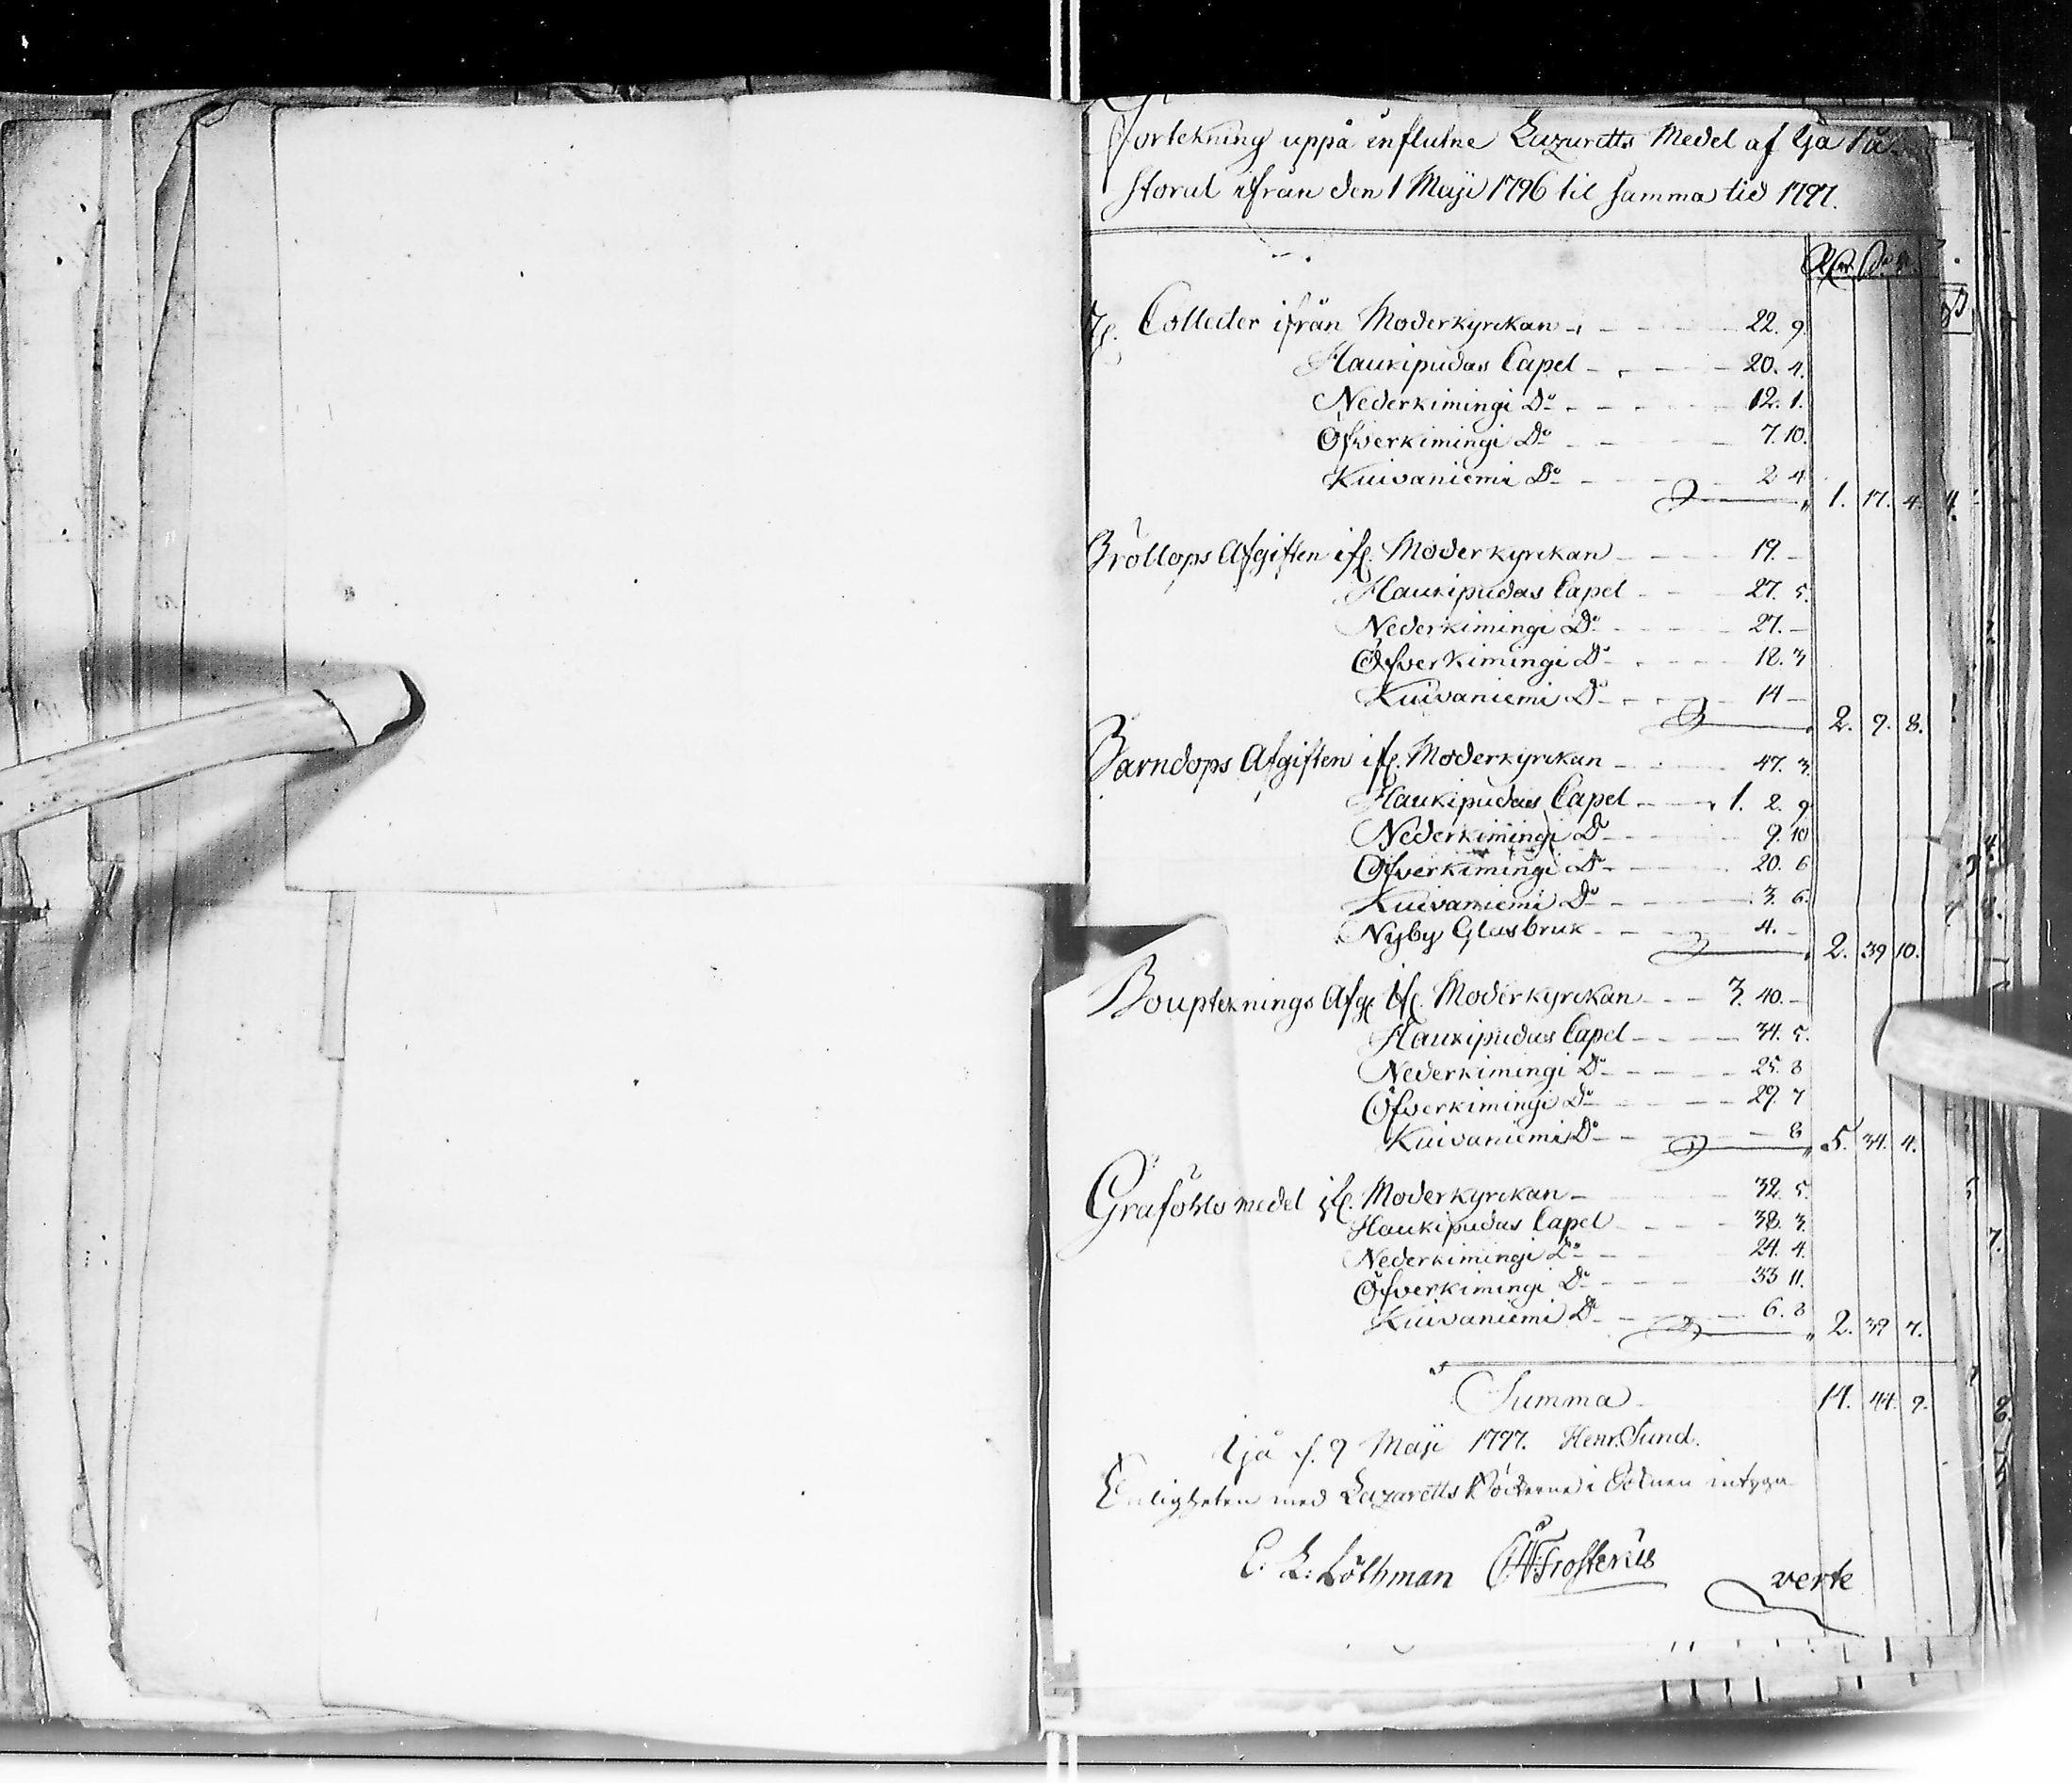 Förtekning uppå influtne Lazaretts Medel af Ijå Pa-
storat ifrån den 1 Maji 1796 til samma tid 1797.
Collecter ifrån Moderkyrckan - 22. 9.
Haukipudas Capel - 20. 4.
Nederkimingi Do - 12. 1.
Öfverkimingi Do - 7. 10.
Kuivaniemi Do - 2 4 1. 17. 4.
Bröllops Afgiften ifr. Moderkyrckan - 19. -
Haukipudas Capel - 27. 5.
Nederkimingi Do - 27. -
Öfverkimingi Do - 18. 3
Kuivaniemi Do - 14 - 2. 9. 8.
Barndops Afgiften ifr. Moderkyrckan - 47. 3.
Haukipudas Capel - 1. 2. 9
Nederkimingi Do - 9. 10
Öfverkimingi Do - 20. 6
Kuivaniemi Do - 3. 6.
Nyby Glasbruk - 4. - 2. 39 10.
Boupteknings Afg. ifr. Moderkyrckan - 3. 40. -
Haukipudas Capel - 34. 5.
Nederkimingi Do - 25. 8
Öfverkimingi Do - 29. 7
Kuivaniemi Do - 8 5. 34. 4.
Grafööls medel ifr. Moderkyrckan - 32. 5.
Haukipudas Capel - 38. 3.
Nederkimingi Do - 24. 4.
Öfverkimingi Do - 33 11.
Kuivaniemi Do - 6. 8 2. 39 7.
Summa 14. 44. 9.
Ijå d. 9 Maji 1797. Henr. Sund.
Enligheten med Lazaretts Böckerne i Socknen intyga
E. L. Löthman Frosterus verte